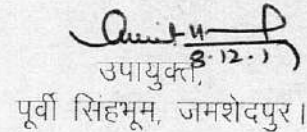 8.12.17
उपायुक्त,
पूर्वी सिंहभूम, जमशेदपुर।